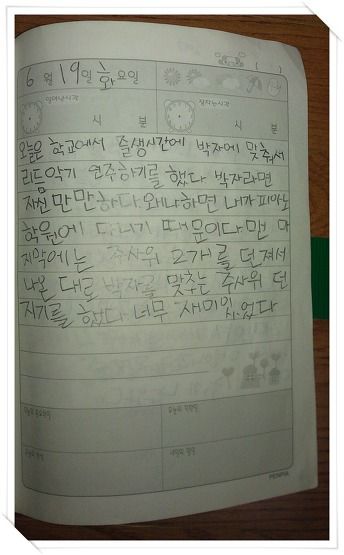 6월 19일 화요일
일어난시각
잠자는시각
시 분
시 분
오늘은 학교에서 즐생시간에 박자에 맞춰서
리듬악기 연주하기를 했다 박자라면
자신 만만하다 왜냐하면 내가 피아노
학원에 다니기 때문이다 맨 마
지막에는 주사위 2개를 던져서
나온 대로 박자를 맞추는 주사위 던
지기를 했다 너무 재미있었다
오늘의 중요한일
오늘의 착한일